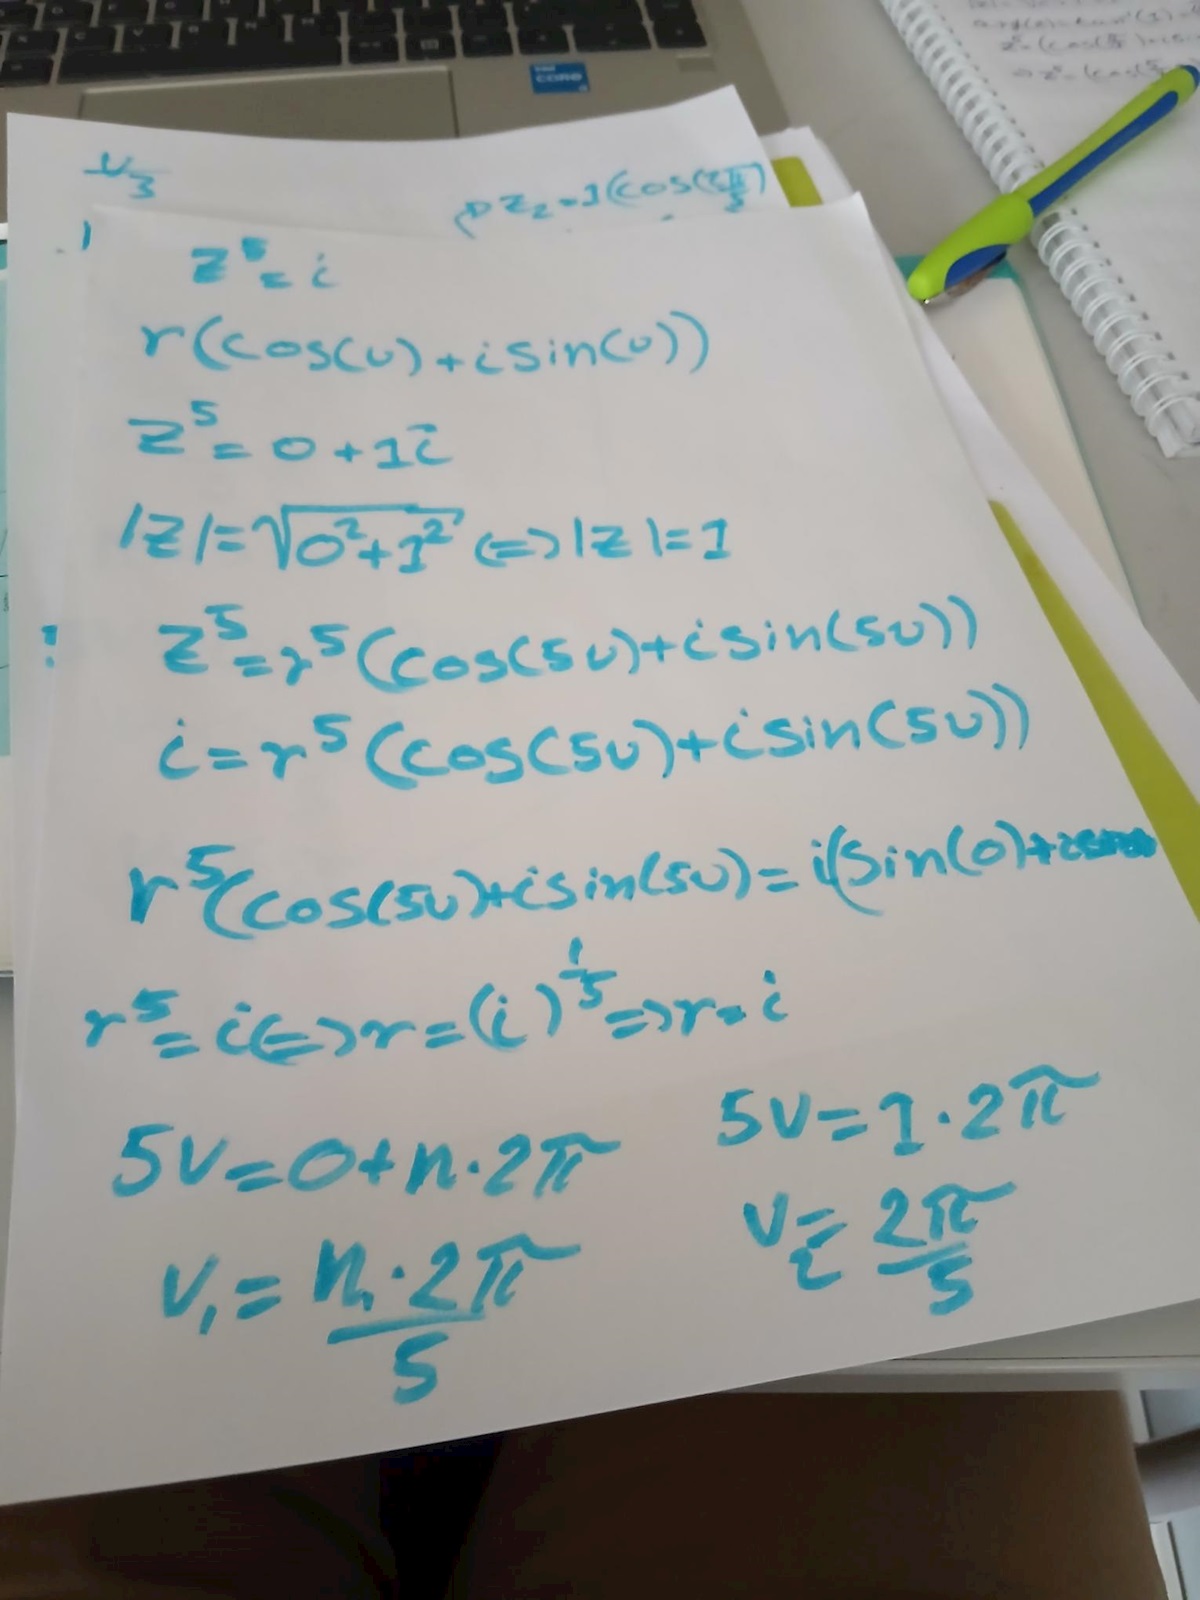 core
V3
z₂=1(cos(2π/5)
z⁵=i
r(cos(v)+isin(v))
z⁵=0+1i
|z|=√0²+1² <=> |z|=1
z⁵=r⁵(cos(5v)+isin(5v))
i=r⁵(cos(5v)+isin(5v))
r⁵(cos(5v)+isin(5v)=i(sin(0)+
r⁵=i<=>r=(i)^1/5=>r=i
5v=0+n·2π
5v=1·2π
v₁=n₁·2π/5
v₂=2π/5